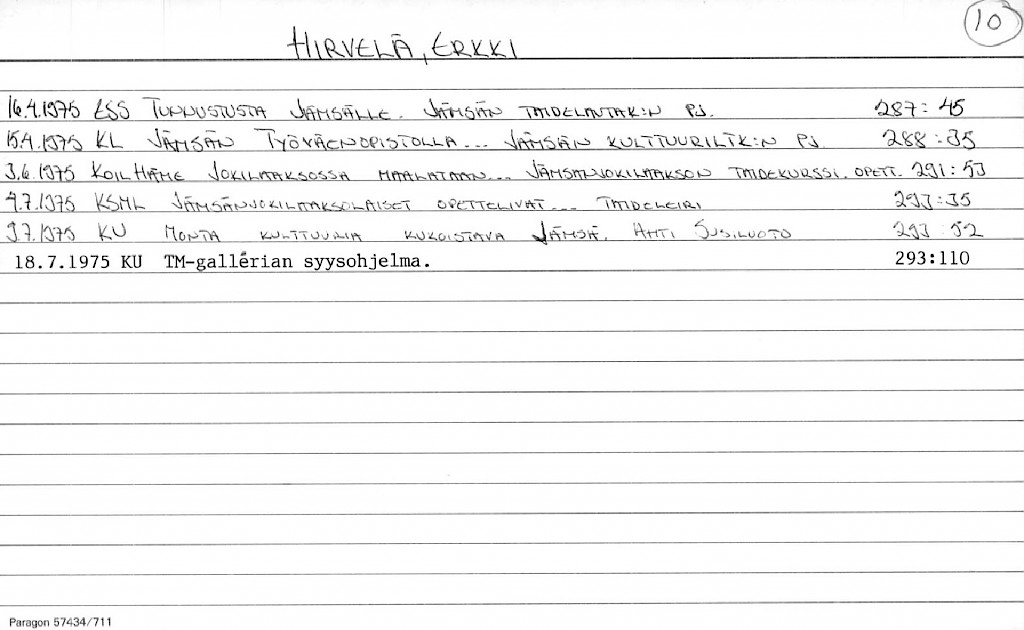 10
HIRVELÄ, ERKKI
16.4.1975 ESS TUNNUSTUSTA JÄMSÄLLE. JÄMSÄN TAIDELAUTAK:N PJ. 287:45
15.4.1975 KL JÄMSÄN TYÖVÄENOPISTOLLA... JÄMSÄN KULTTUURILTK:N PJ. 288:35
3.6.1975 KOILHÄME JOKILAAKSOSSA MAALATAAN... JÄMSÄNJOKILAAKSON TAIDEKURSSI. OPETT. 291:53
4.7.1975 KSML JÄMSÄNJOKILAAKSOLAISET OPETTELIVAT... TAIDELEIRI 293:35
9.7.1975 KU MONTA KULTTUURIA KUKOISTAVA JÄMSÄ. AHTI SUSILUOTO 293:52
18.7.1975 KU TM-gallerian syysohjelma. 293:110
Paragon 57434/711